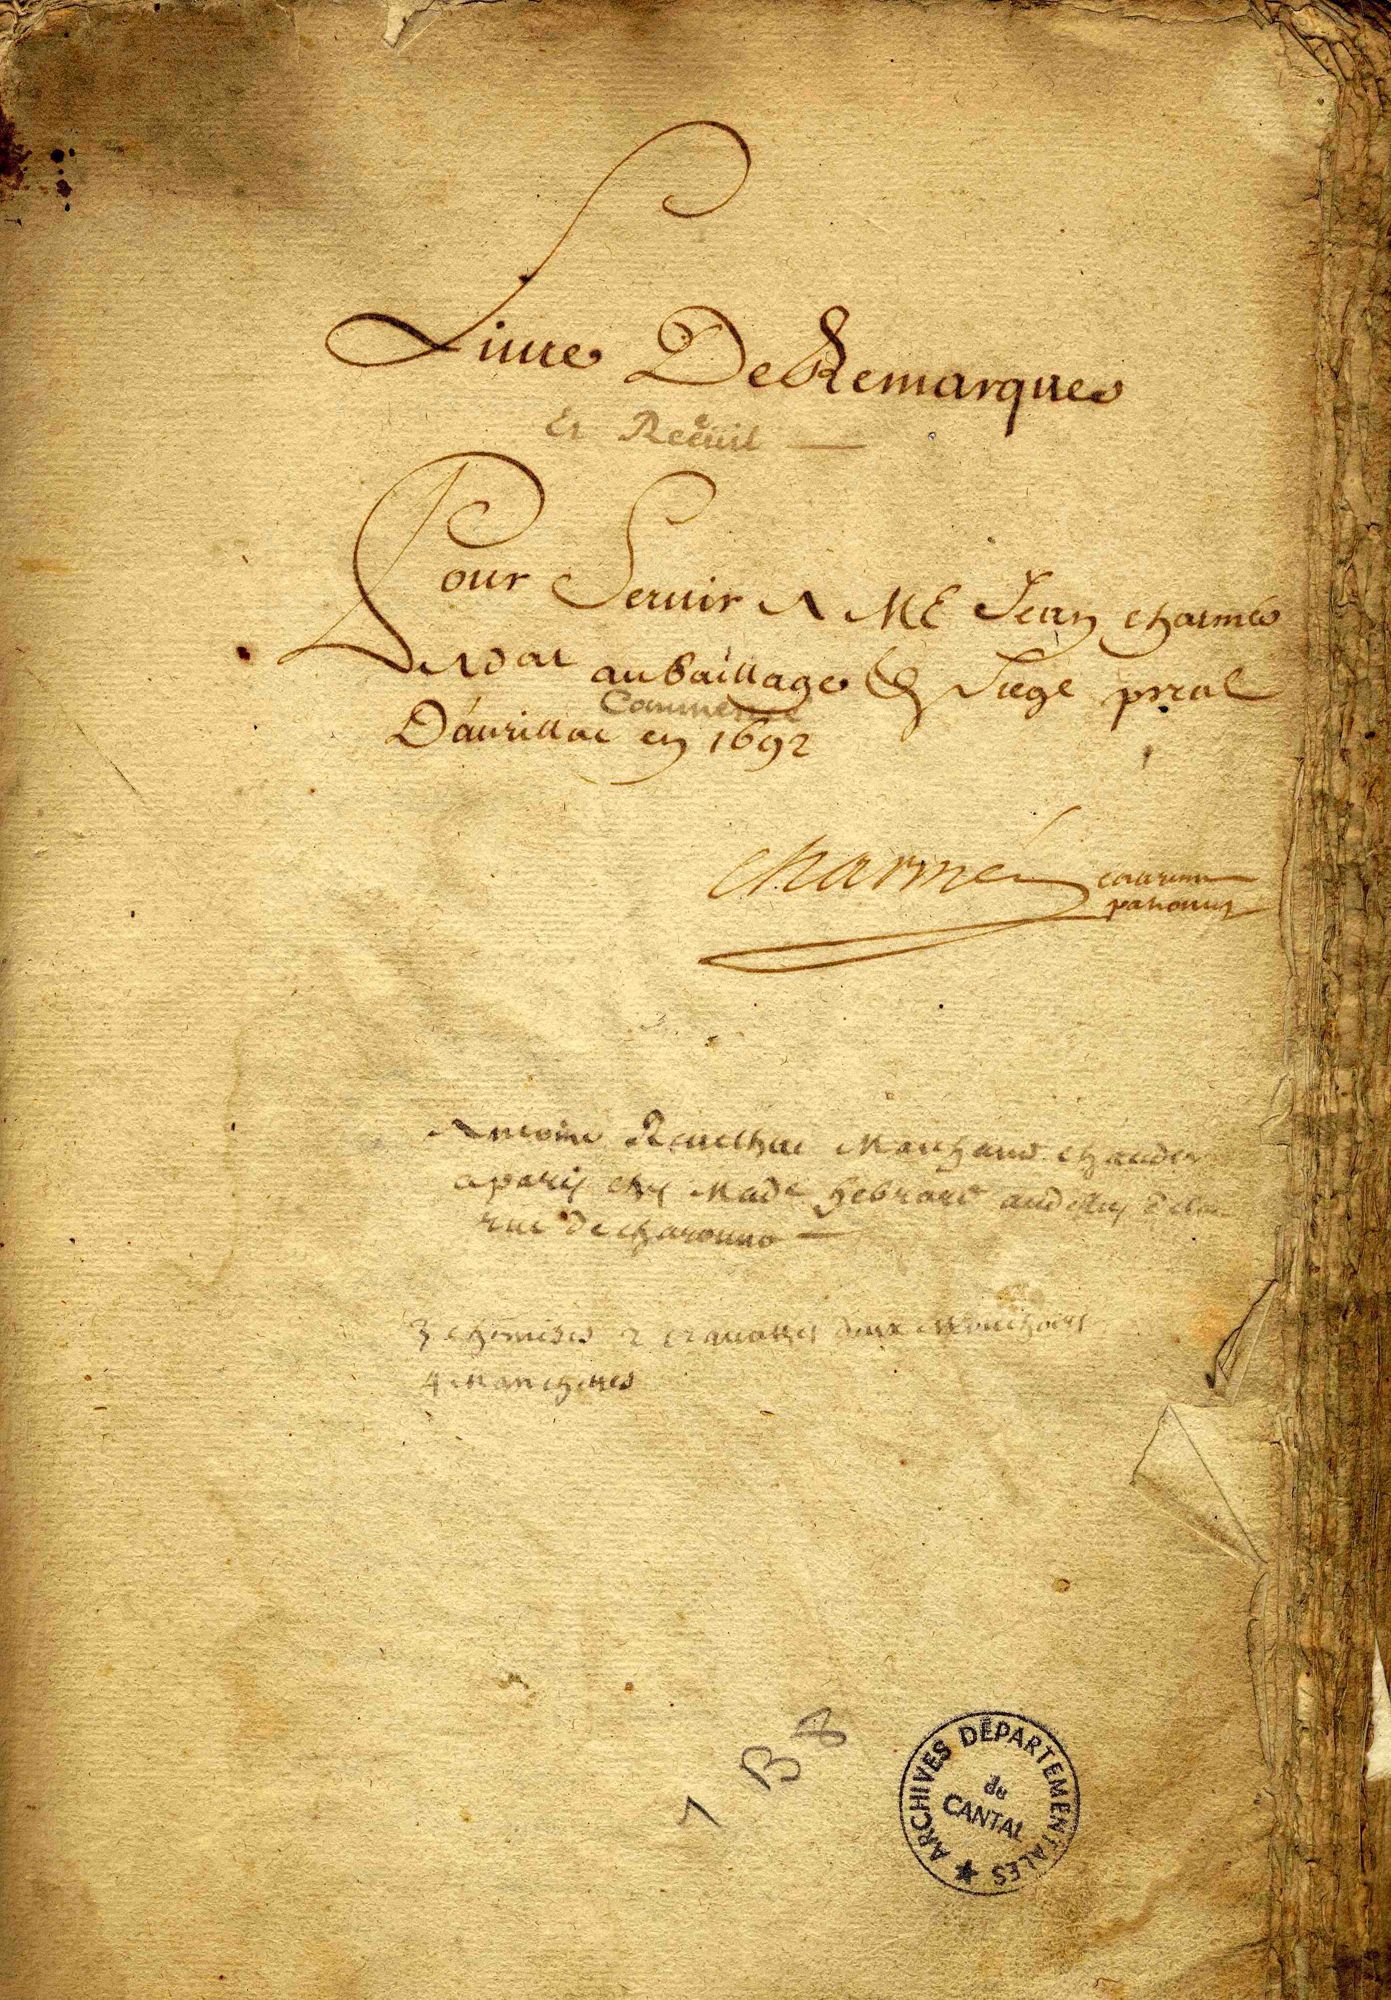 Livre De Remarques
Et Recüil
Pour Servir A ME Jean charmes
Advat au baillage & Siege prãl
Commencé
D'aurillac en 1692
charmes
Antoine Reuelhac Marchand chauder
a paris chez Made hebrard
rue de charonno
3 chemises 2 crauattes deux Mouchoirs
4 Manchettes
1 B 8
ARCHIVES DÉPARTEMENTALES
du
CANTAL